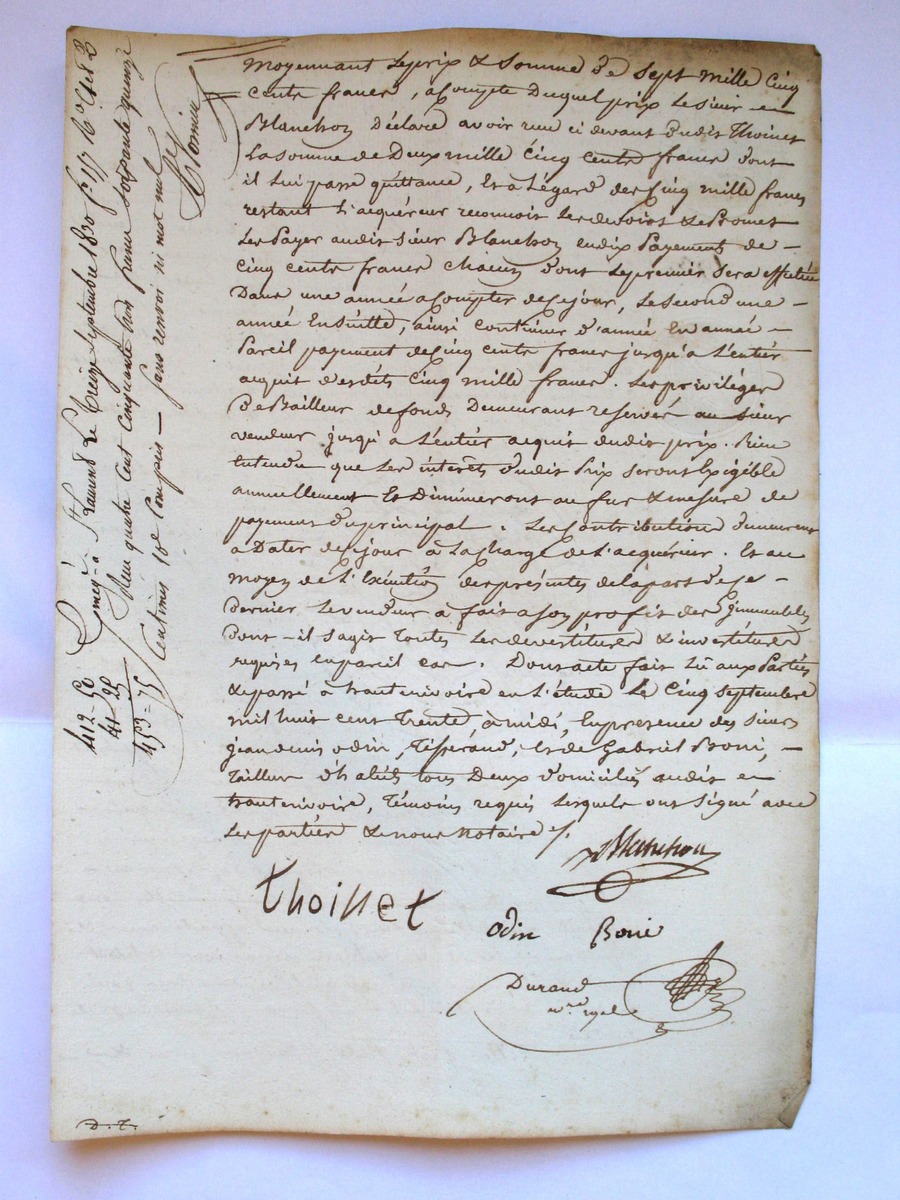 moyennant le prix & somme de sept mille cinq
cents francs, a compte duquel prix le sieur
Blanchon déclare avoir reçu ci devant dudit Thoinet
la somme de Deux mille cinq cents francs dont
il lui passe quittance, Et à l'égard des cinq mille francs
restant l'acquéreur reconnoit les devoirs & Promet
les Payer audit sieur Blanchon en dix Payements de
cinq cents francs chacun dont le premier sera effectué
Dans une année a compter de ce jour, le second une
année En suitte, ainsi continuer d'année En année
Pareil payement de cinq cents francs jusqu'a l'entier
acquit desdits cinq mille francs. Les privilèges
de Bailleur de fonds Demeurant reservés au sieur
vendeur jusqu'a l'entier acquit dudit prix. Bien
Entendu que les interêts dudit Prix seront Exigible
annuellement Et Diminueront au fur & mesure de
payement du principal. Les Contributions demeurent
a Dater de ce jour à la charge de l'acquéreur. Et au
moyen de l'Exécution des présentes de la part de ce
dernier le vendeur à fait a son profit des immeubles
Dont il s'agit toutes les devestitures & investitures
requises en pareil cas. Dont acte fait Lu aux Parties
& passé à hauterivoire en l'étude Le Cinq septembre
mil huit cent trente à midi, En presence des sieurs
jean denis odin, Tisserand, & de Gabriel Boni,
Tailleur d'habits tous Deux domiciliés audit
hauterivoire, Témoins requis lesquels ont signé avec
les parties & nous notaire
Blanchon
thoinet
odin Bonie
Durand
nre royal
D. T.
Enregé à St Laurent Le treize septembre 1830 fo 117 Ro Cses 2
Reçu quatre cent cinquante trois francs soixante quinze
Centimes 10e Compris — sans renvoi ni mot nul
412 - 50
41 - 25
453 - 75